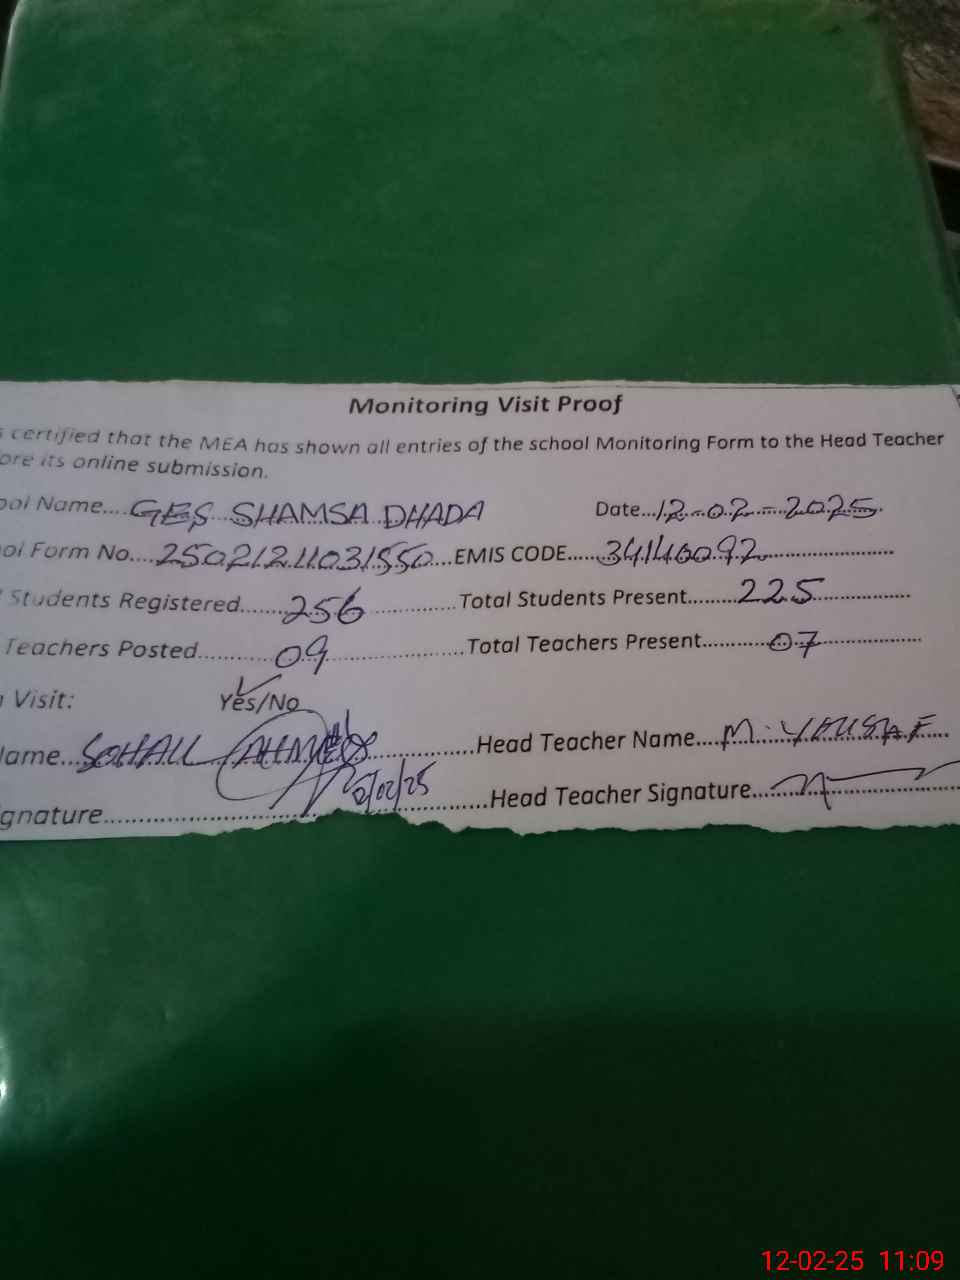 Monitoring Visit Proof
s certified that the MEA has shown all entries of the school Monitoring Form to the Head Teacher
ore its online submission.
ool Name....GES SHAMSA DHADA Date...12-02-2025
ol Form No....25021211031550...EMIS CODE.....34140092
Students Registered.......256 Total Students Present........225
Teachers Posted.........09 Total Teachers Present.........07
Visit: Yes/No
ame...SOHAIL AHMED Head Teacher Name....M. YOUSAF
12/02/25
gnature Head Teacher Signature
12-02-25 11:09